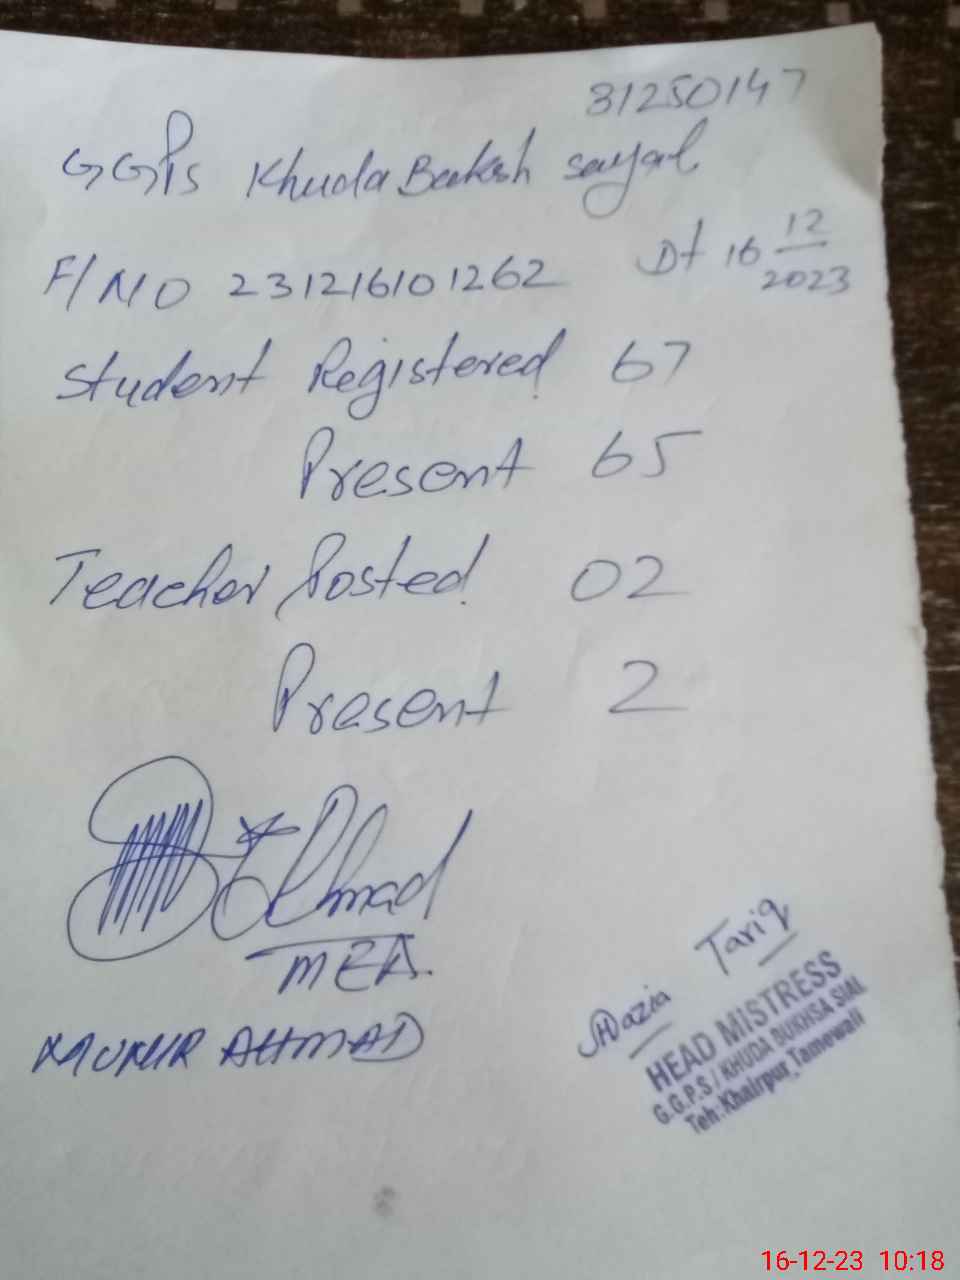 31250147
GGPS Khuda Baksh Sayal
F/NO 231216101262 Dt 16 12/2023
Student Registered 67
Present 65
Teacher Posted 02
Present 2
Ahmad
MEA.
AHMAD
Shazia Tariq
HEAD MISTRESS
G.G.P.S / KHUDA BUKHSA SIAL
Teh: Khairpur Tamewali
16-12-23 10:18